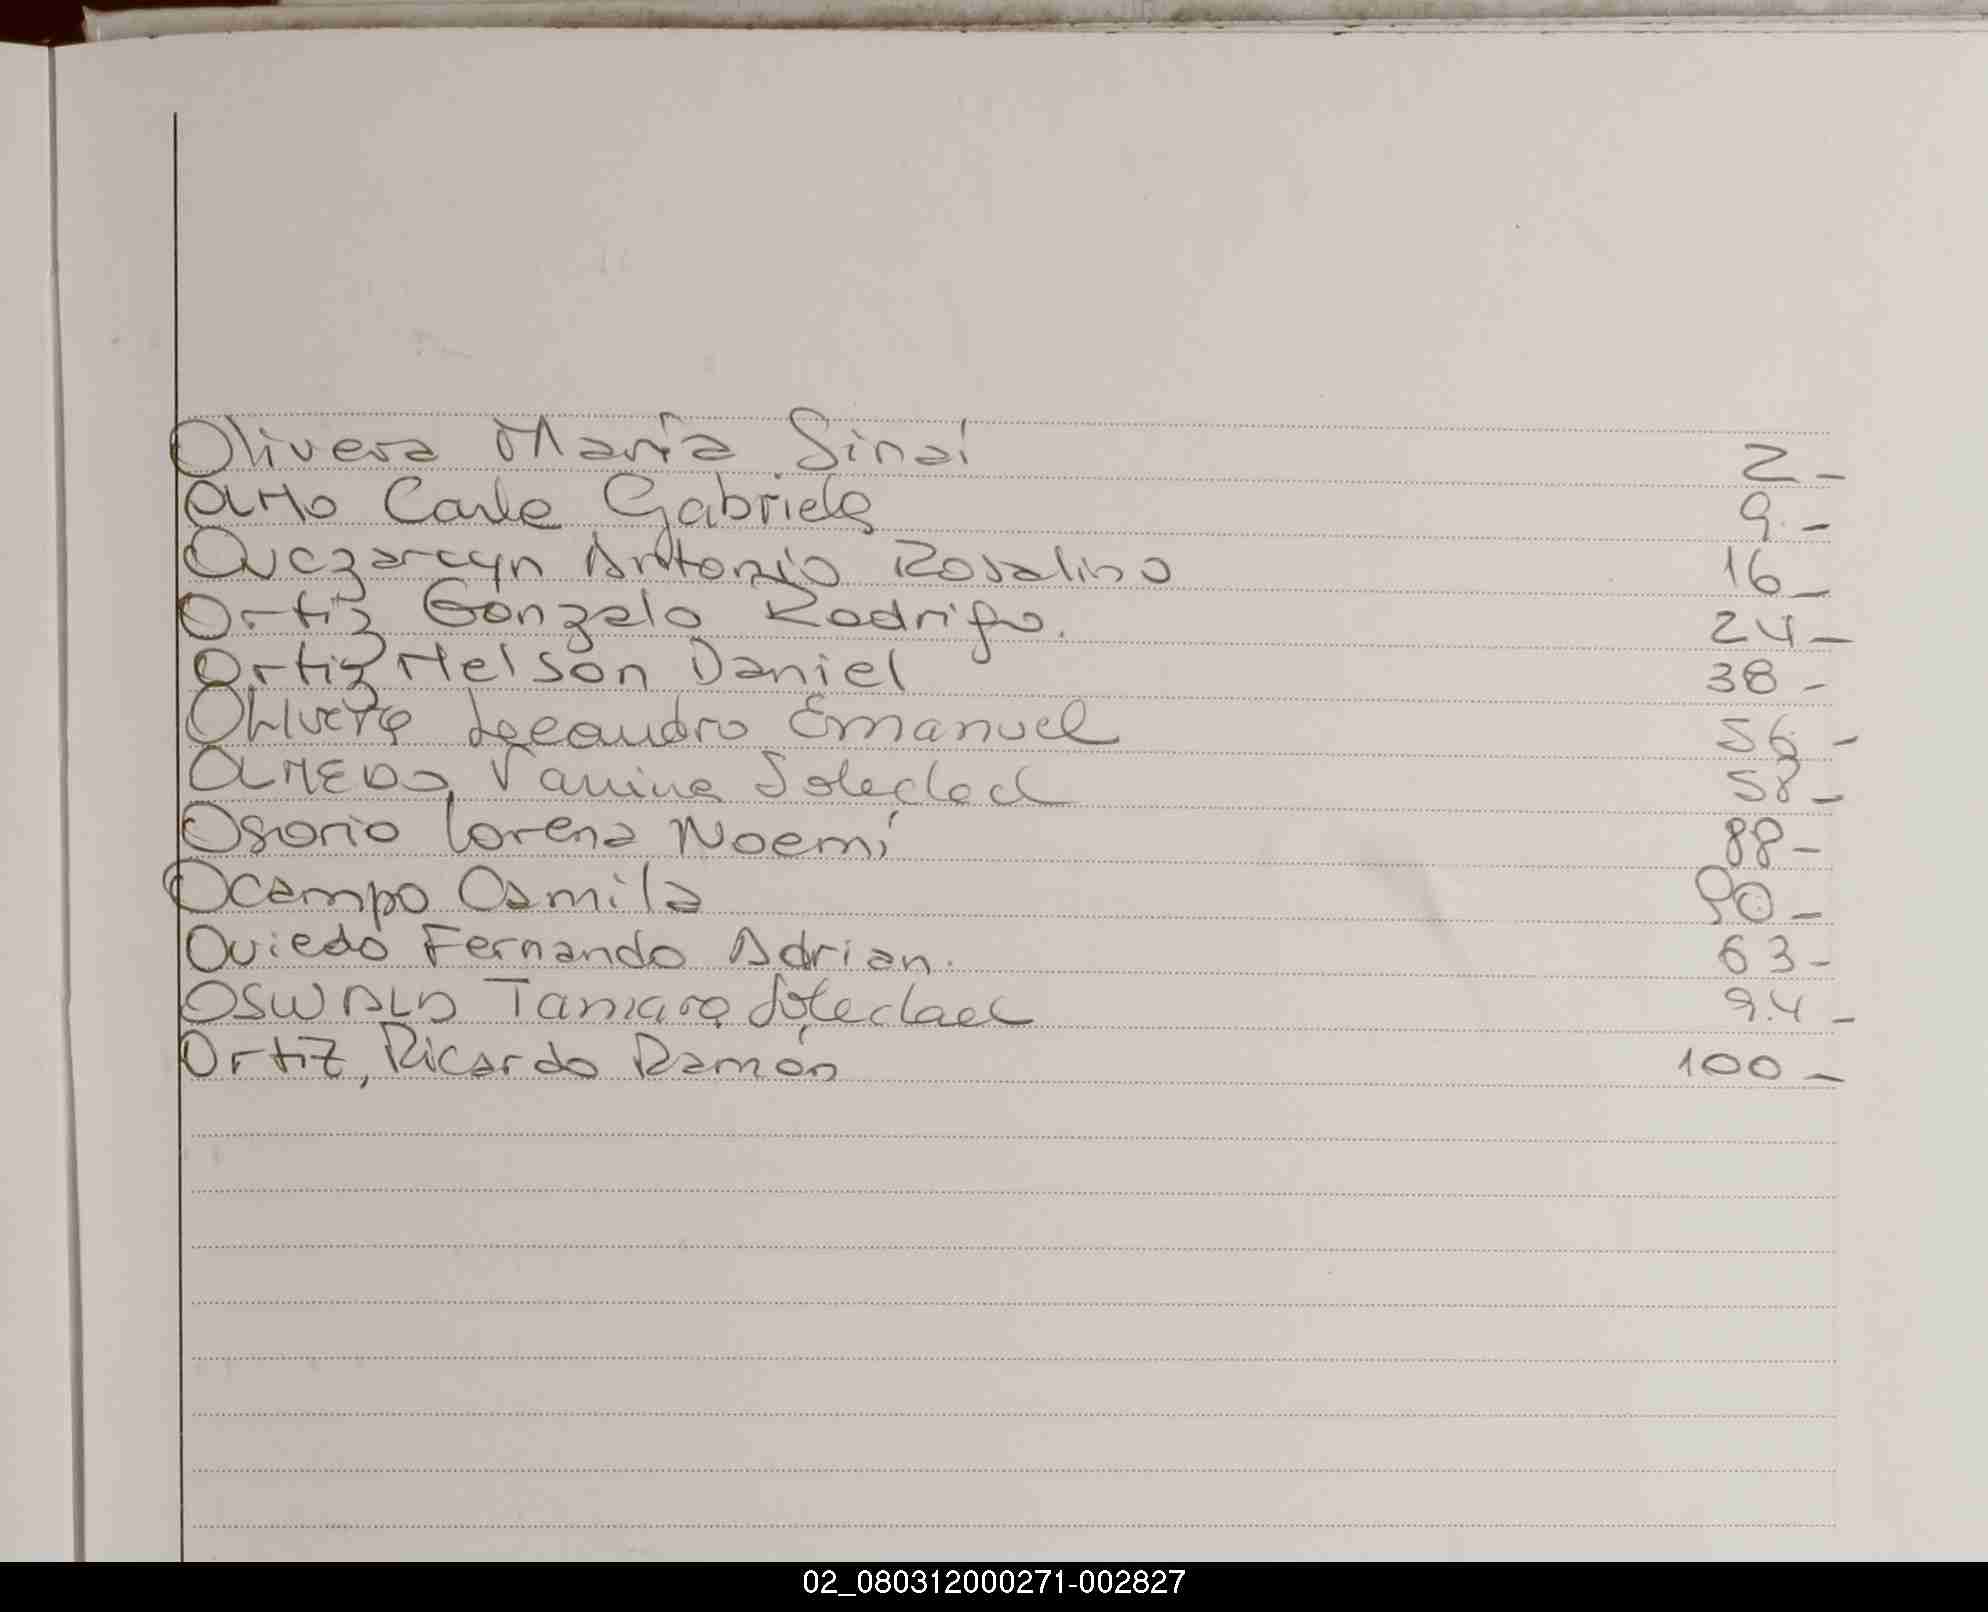 Olivera María Sinaí 2-
Carla Gabriela 9.-
Ovczarcyn Antonio Rosalino 16-
Ortiz Gonzalo Rodrigo. 24-
Ortiz Nelson Daniel 38-
Olivera Leandro Emanuel 56-
OLMEDO, Vanina Soledad 58-
Osorio Lorena Noemí 88-
Ocampo Camila 90-
Oviedo Fernando Adrian. 63-
OSWALD Tamara Soledad 94-
Ortiz, Ricardo Ramón 100-
02_080312000271-002827